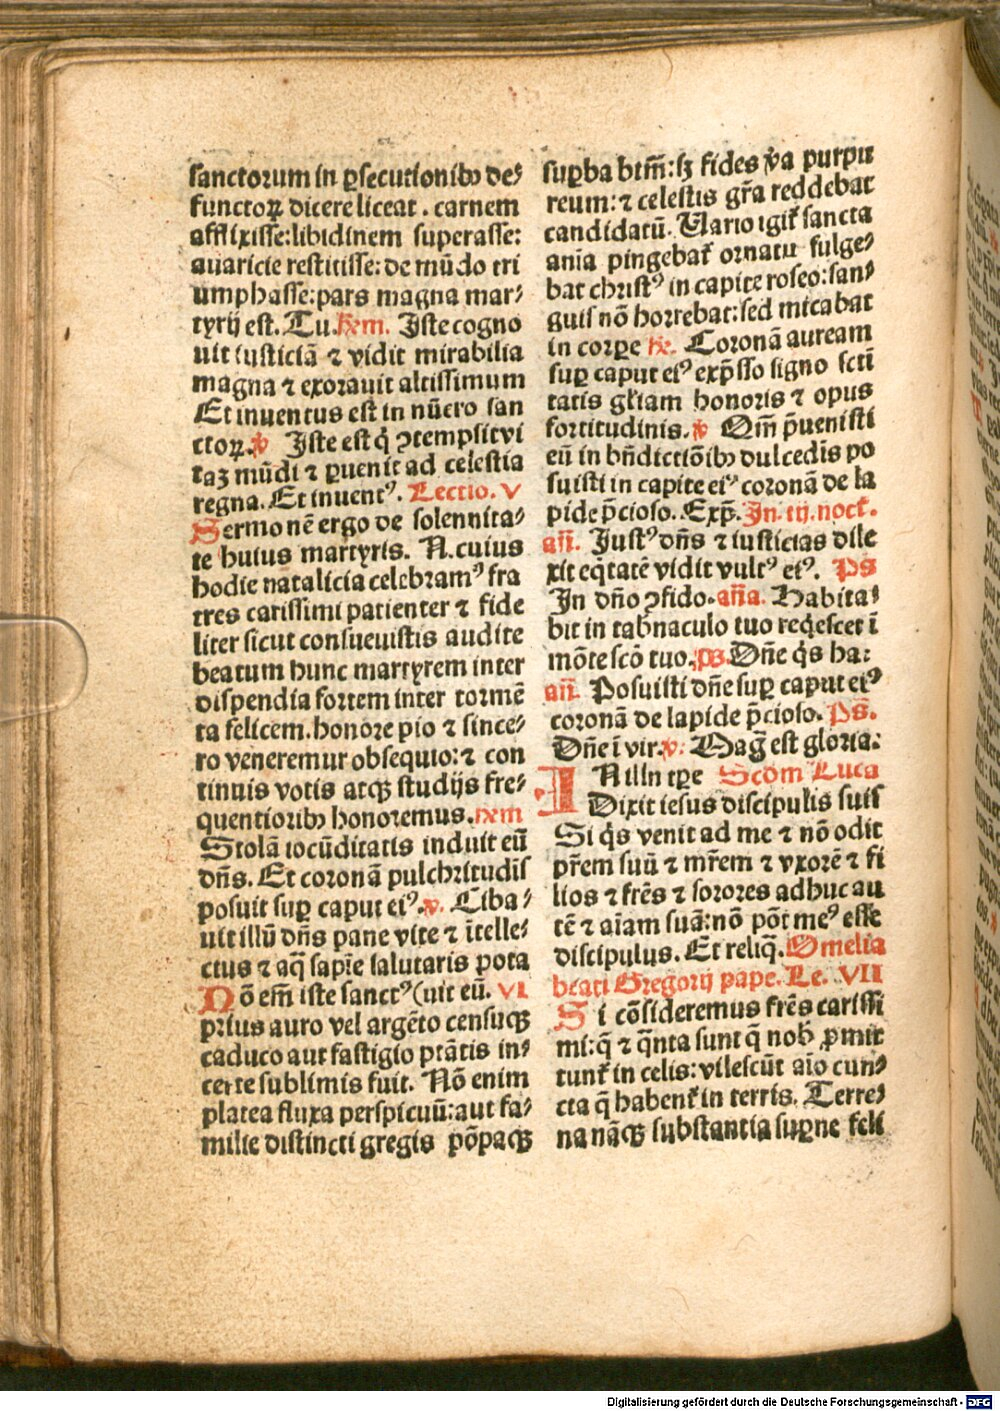 sanctorum in ꝑsecutionibꝫ de⸗
functoꝝ dicere liceat . carnem
afflixisse: libidinem superasse:
auaricie restitisse: de mūdo tri
umphasse: pars magna mar⸗
tyrij est. Tu. Rm̄. Iste cogno
uit iusticiā ⁊ vidit mirabilia
magna ⁊ exorauit altissimum
Et inuentus est in nūero san
ctoꝝ. ℣ Iste est q̇ ꝯtempsit vi
taꝫ mūdi ⁊ ꝑuenit ad celestia
regna. Et inuentꝰ. Lectio. V
Sermonē ergo de solennita⸗
te huius martyris. N. cuius
hodie natalicia celebramꝰ fra
tres carissimi patienter ⁊ fide
liter sicut consueuistis audite
beatum hunc martyrem inter
dispendia fortem inter tormē
ta felicem. honore pio ⁊ since⸗
ro veneremur obsequio: ⁊ con
tinuis votis atqꝫ studijs fre⸗
quentioribꝫ honoremus. rxm
Stolā iocūditatis induit eū
dn̄s. Et coronā pulchritudīs
posuit suꝑ caput eiꝰ. ℣. Ciba⸗
uit illū dn̄s pane vite ⁊ ītelle⸗
ctus ⁊ aq̄ sapīe salutaris pota
Nō em̄ iste sanctꝰ (uit eū. VI
prius auro vel argēto censuqꝫ
caduco aut fastigio ptātis in⸗
certe sublimis fuit. Nō enim
platea fluxa perspicuū: aut fa⸗
milie distincti gregis pōpaqꝫ
suꝑba btm̄: sꝫ fides v̄a purpu
reum: ⁊ celestis gr̄a reddebat
candidatū. Uario igit᷑ sancta
anīa pingebat᷑ ornatu fulge⸗
bat christꝰ in capite roseo: san⸗
guis nō horrebat: sed micabat
in corꝑe ℟. Coronā auream
suꝑ caput eiꝰ exp̄sso signo scti
tatis gl̄iam honoris ⁊ opus
fortitudinis. ℣ Qm̄ p̄uenisti
eū in bn̄dictiōibꝫ dulcedīs po
suisti in capite eiꝰ coronā de la
pide p̄cioso. Exp̄. In. iij. noct᷑.
an̄. Iustꝰ dn̄s ⁊ iusticias dile
xit eq̇tatē vidit vultꝰ eiꝰ. Ps
In dn̄o ꝯfido. an̄a. Habita⸗
bit in tabnaculo tuo req̇escet ī
mōte scō tuo. ps. Dn̄e q̇s ha:
an̄. Posuisti dn̄e suꝑ caput eiꝰ
coronā de lapide p̄cioso. Ps.
Dn̄e ī vir. ℣. Maḡ est gloria:
IN illn tꝑe Scdm Luca
Dixit iesus discipulis suis
Si q̇s venit ad me ⁊ nō odit
pr̄em suū ⁊ mr̄em ⁊ vxorē ⁊ fi
lios ⁊ fr̄es ⁊ sorores adhuc au
tē ⁊ aīam suā: nō pōt meꝰ esse
discipulus. Et reliq̄. Omelia
beati Gregorij pape. Le. VII
Si cōsideremus fr̄es carissi
mi: q̄ ⁊ q̄nta sunt q̄ nob̄ ꝓmit
tunt᷑ in celis: vilescūt aīo cun⸗
cta q̄ habent᷑ in terris. Terre⸗
na nāqꝫ substantia suꝑne feli
Digitalisierung gefördert durch die Deutsche Forschungsgemeinschaft - DFG